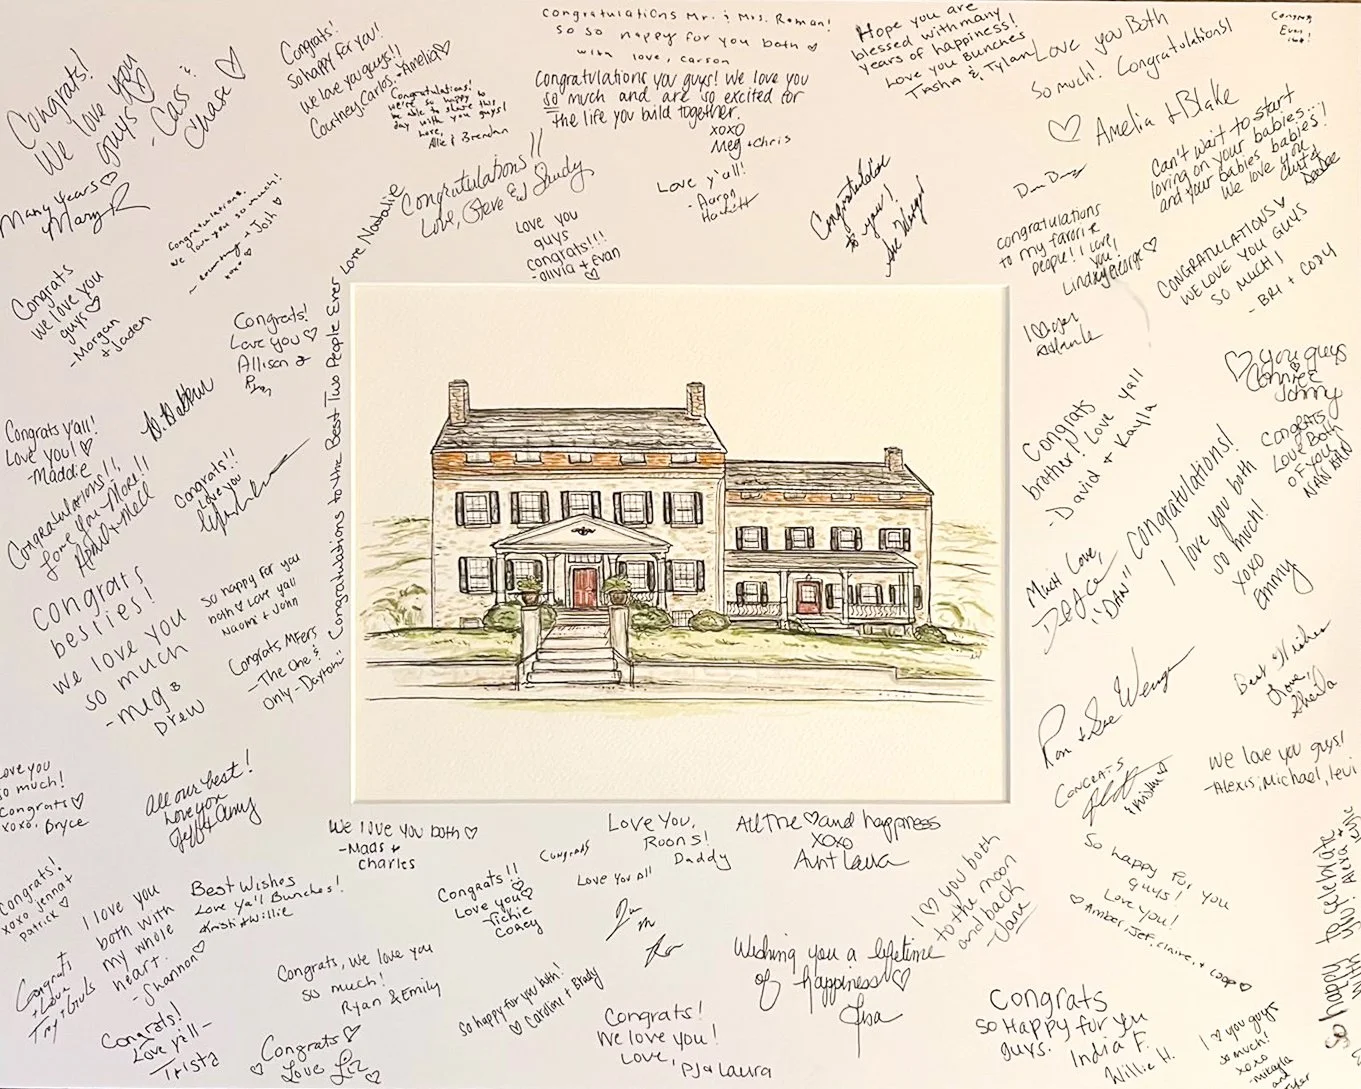 Congrats!
We love you
guys
- Cass &
Chase
Congrats!
So happy for you!
We love you guys!!
Courtney, Carlos, + Amelia
Congratulations!
We're so happy to
be able to share this
day with you guys!
Love,
Allie & Brendan
Congratulations Mr. & Mrs. Roman!
So so happy for you both
with love, Carson
Congratulations you guys! We love you
so much and are so excited for
the life you build together.
xoxo
Meg + Chris
Hope you are
blessed with many
years of happiness!
Love you Bunches
Tasha & Tylan
Love you Both
so much! Congratulations!
Amelia + Blake
Can't wait to start
loving on your babies...
and your babies babies!
We love you,
Congratulations!!
Love, Steve & Judy
Love y'all!
- Aaron
Congratulations
to you!
Many years
Mary R
Congratulations.
We love you so much!
- Courtney + Josh
xoxo
Love you
guys
congrats!!!
- Olivia + Evan
Congratulations
to my favorite
people! I love
you!
Lindsay & George
CONGRATULATIONS
WE LOVE YOU GUYS
SO MUCH!
- BRI + CODY
Congrats
we love you
guys
- Morgan
+ Jaden
Congrats!
Love you
Allison &
Ryan
Congratulations to the Best Two People Ever Love Natalie
you guys
Connie &
Johnny
Congrats y'all!
Love you!
- Maddie
Congrats
brother! Love y'all
- David + Kayla
Congrats
Love Both
of you
Congratulations!!
Love You More!!
April + Mel
Congrats!!
Love you
Congratulations!
I love you both
so much!
xoxo
Emmy
Much Love,
"DAN"
Congrats
besties!
we love you
so much
- Meg &
Drew
So happy for you
both Love you all
Naomi + John
Congrats MFers
- The One &
Only - Dayton"
Best Wishes
Love,
Sheila
Ron & Sue
Love you
so much!
Congrats
xoxo, Bryce
All our best!
Love you
Jeff & Amy
Congrats
We love you guys!
- Alexis, Michael, Levi
We love you both
- Mads +
Charles
Love You,
Roons!
Daddy
All the and happiness
xoxo
Aunt Laura
Congrats
Love You All
So happy for you
guys!
Love you!
Amber, Jef, Claire, + Coop
Congrats!
xoxo Jenna +
Patrick
I love you
both with
my whole
heart.
- Shannon
Best Wishes
Love Ya'll Bunches!
Kristi + Willie
Congrats!!
Love you
- Richie
Corey
I you both
to the moon
and back
- Jane
Congrats
+ Love
Troy + Girls
Congrats, we love you
so much!
Ryan & Emily
So happy for you both!
Caroline + Brady
Wishing you a lifetime
of happiness
Lisa
Congrats!
Love y'all -
Trista
Congrats
Love Liz
Congrats!
We love you!
Love,
PJ & Laura
Congrats
So Happy for you
Guys.
India F.
Willie H.
I you guys
so much!
xoxo
- Mikayla
and
So happy to celebrate
you!